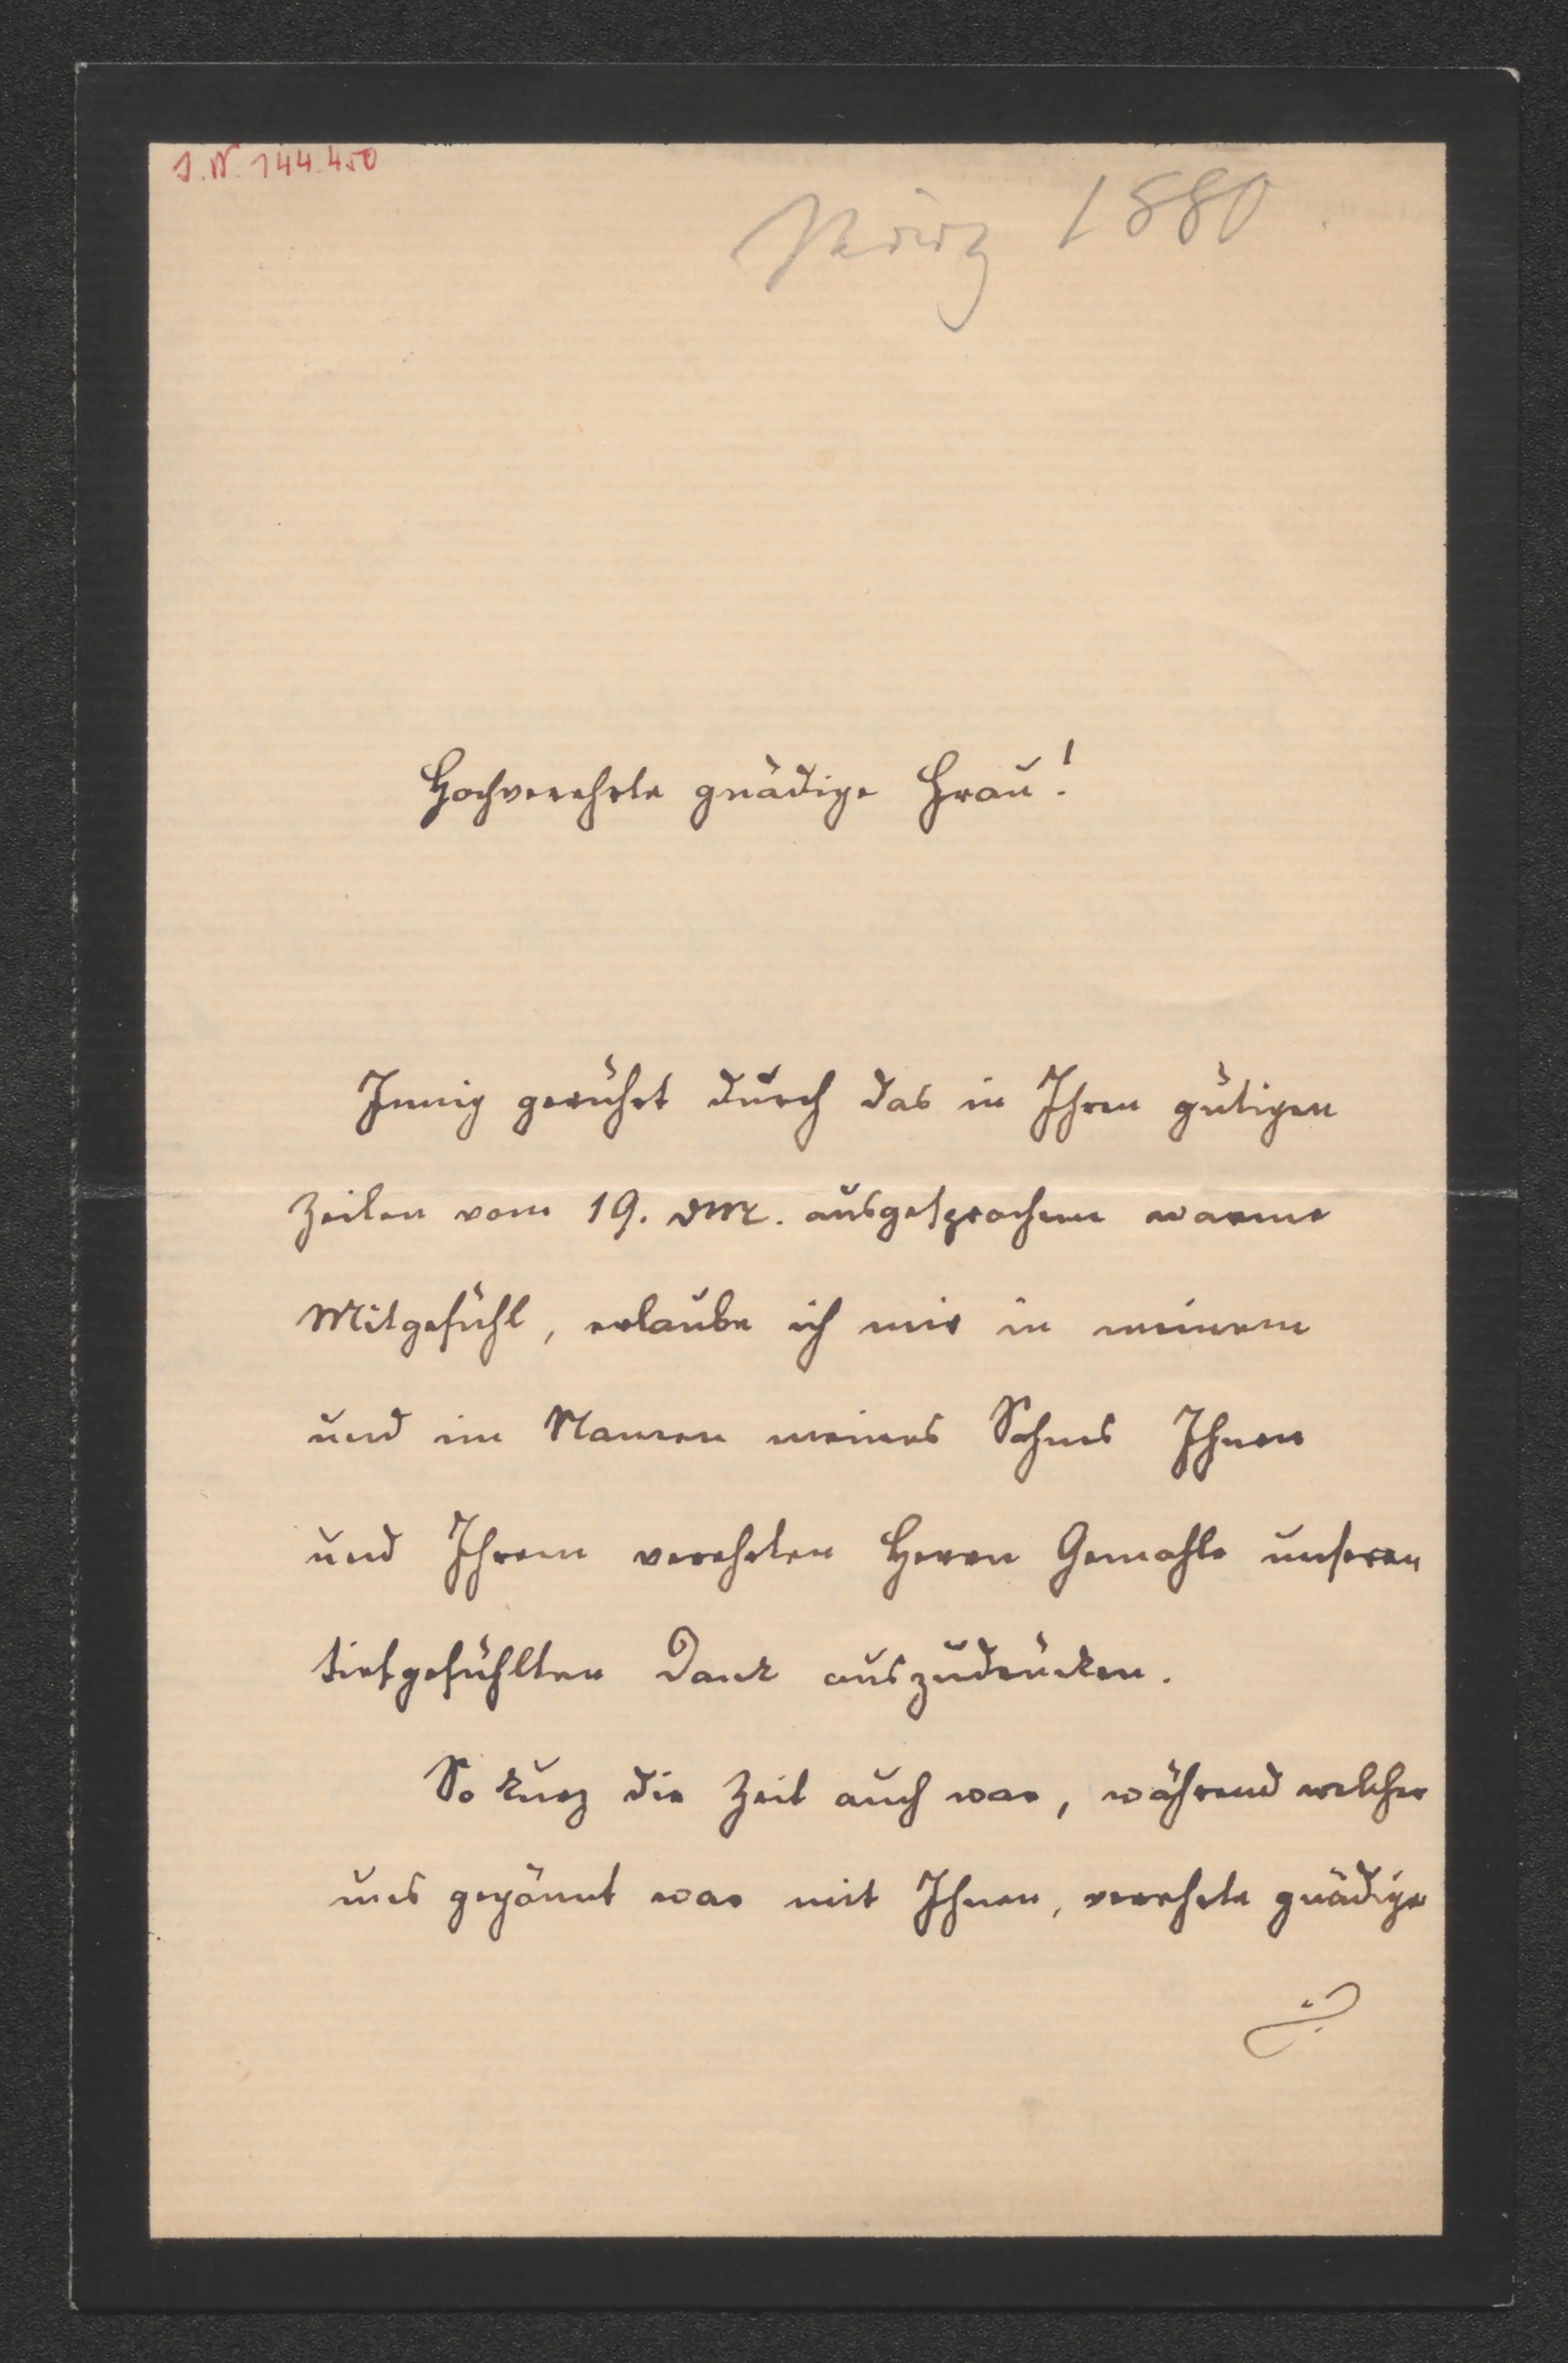 I.N. 144.450
März 1880
Hochverehrte gnädige Frau!
Innig gerührt durch das in Ihren gütigen
Zeilen vom 19. d M. ausgesprochene warme
Mitgefühl, erlaube ich mir in meinem
und im Namen meines Sohnes Ihnen
und Ihrem verehrten Herrn Gemahle unseren
tiefgefühlten Dank auszudrücken.
So kurz die Zeit auch war, während welcher
uns gegönnt war mit Ihnen, verehrte gnädige